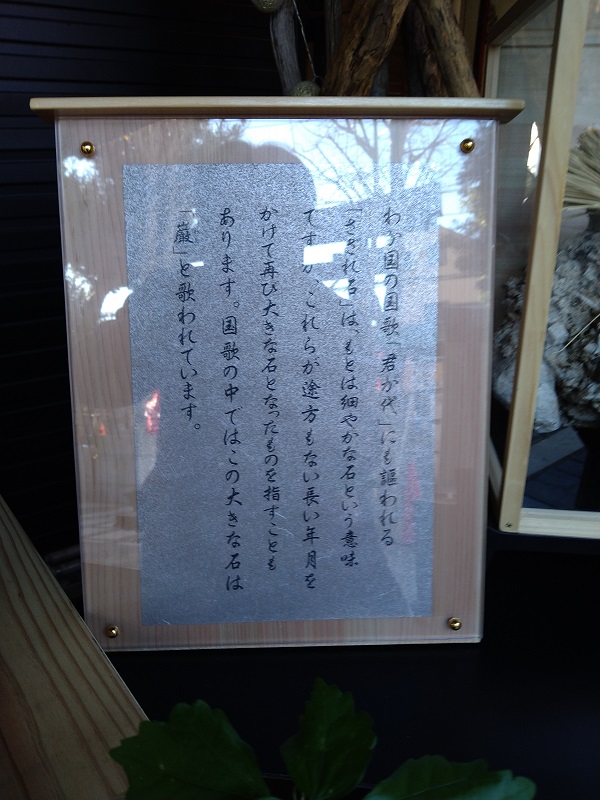 わが国の国歌「君が代」にも謳われる
「さざれ石」は、もとは細やかな石という意味
ですが、これらが途方もない長い年月を
かけて再び大きな石となったものを指すことも
あります。国歌の中ではこの大きな石は
「巌」と歌われています。